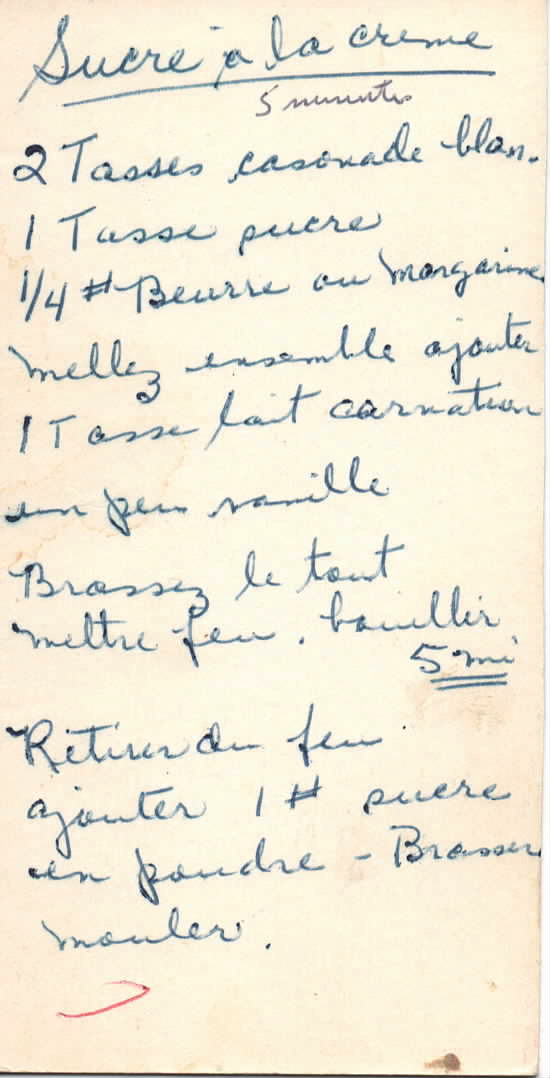 Sucre à la creme
5 minutes
2 Tasses casonade blan.
1 Tasse sucre
1/4 # Beurre ou margarine
Mellez ensemble ajouter
1 Tasse lait carnation
un peu vanille
Brassez le tout
mettre feu. bouillir
5 mi
Retirer du feu
ajouter 1 # sucre
en poudre - Brasser
mouler.